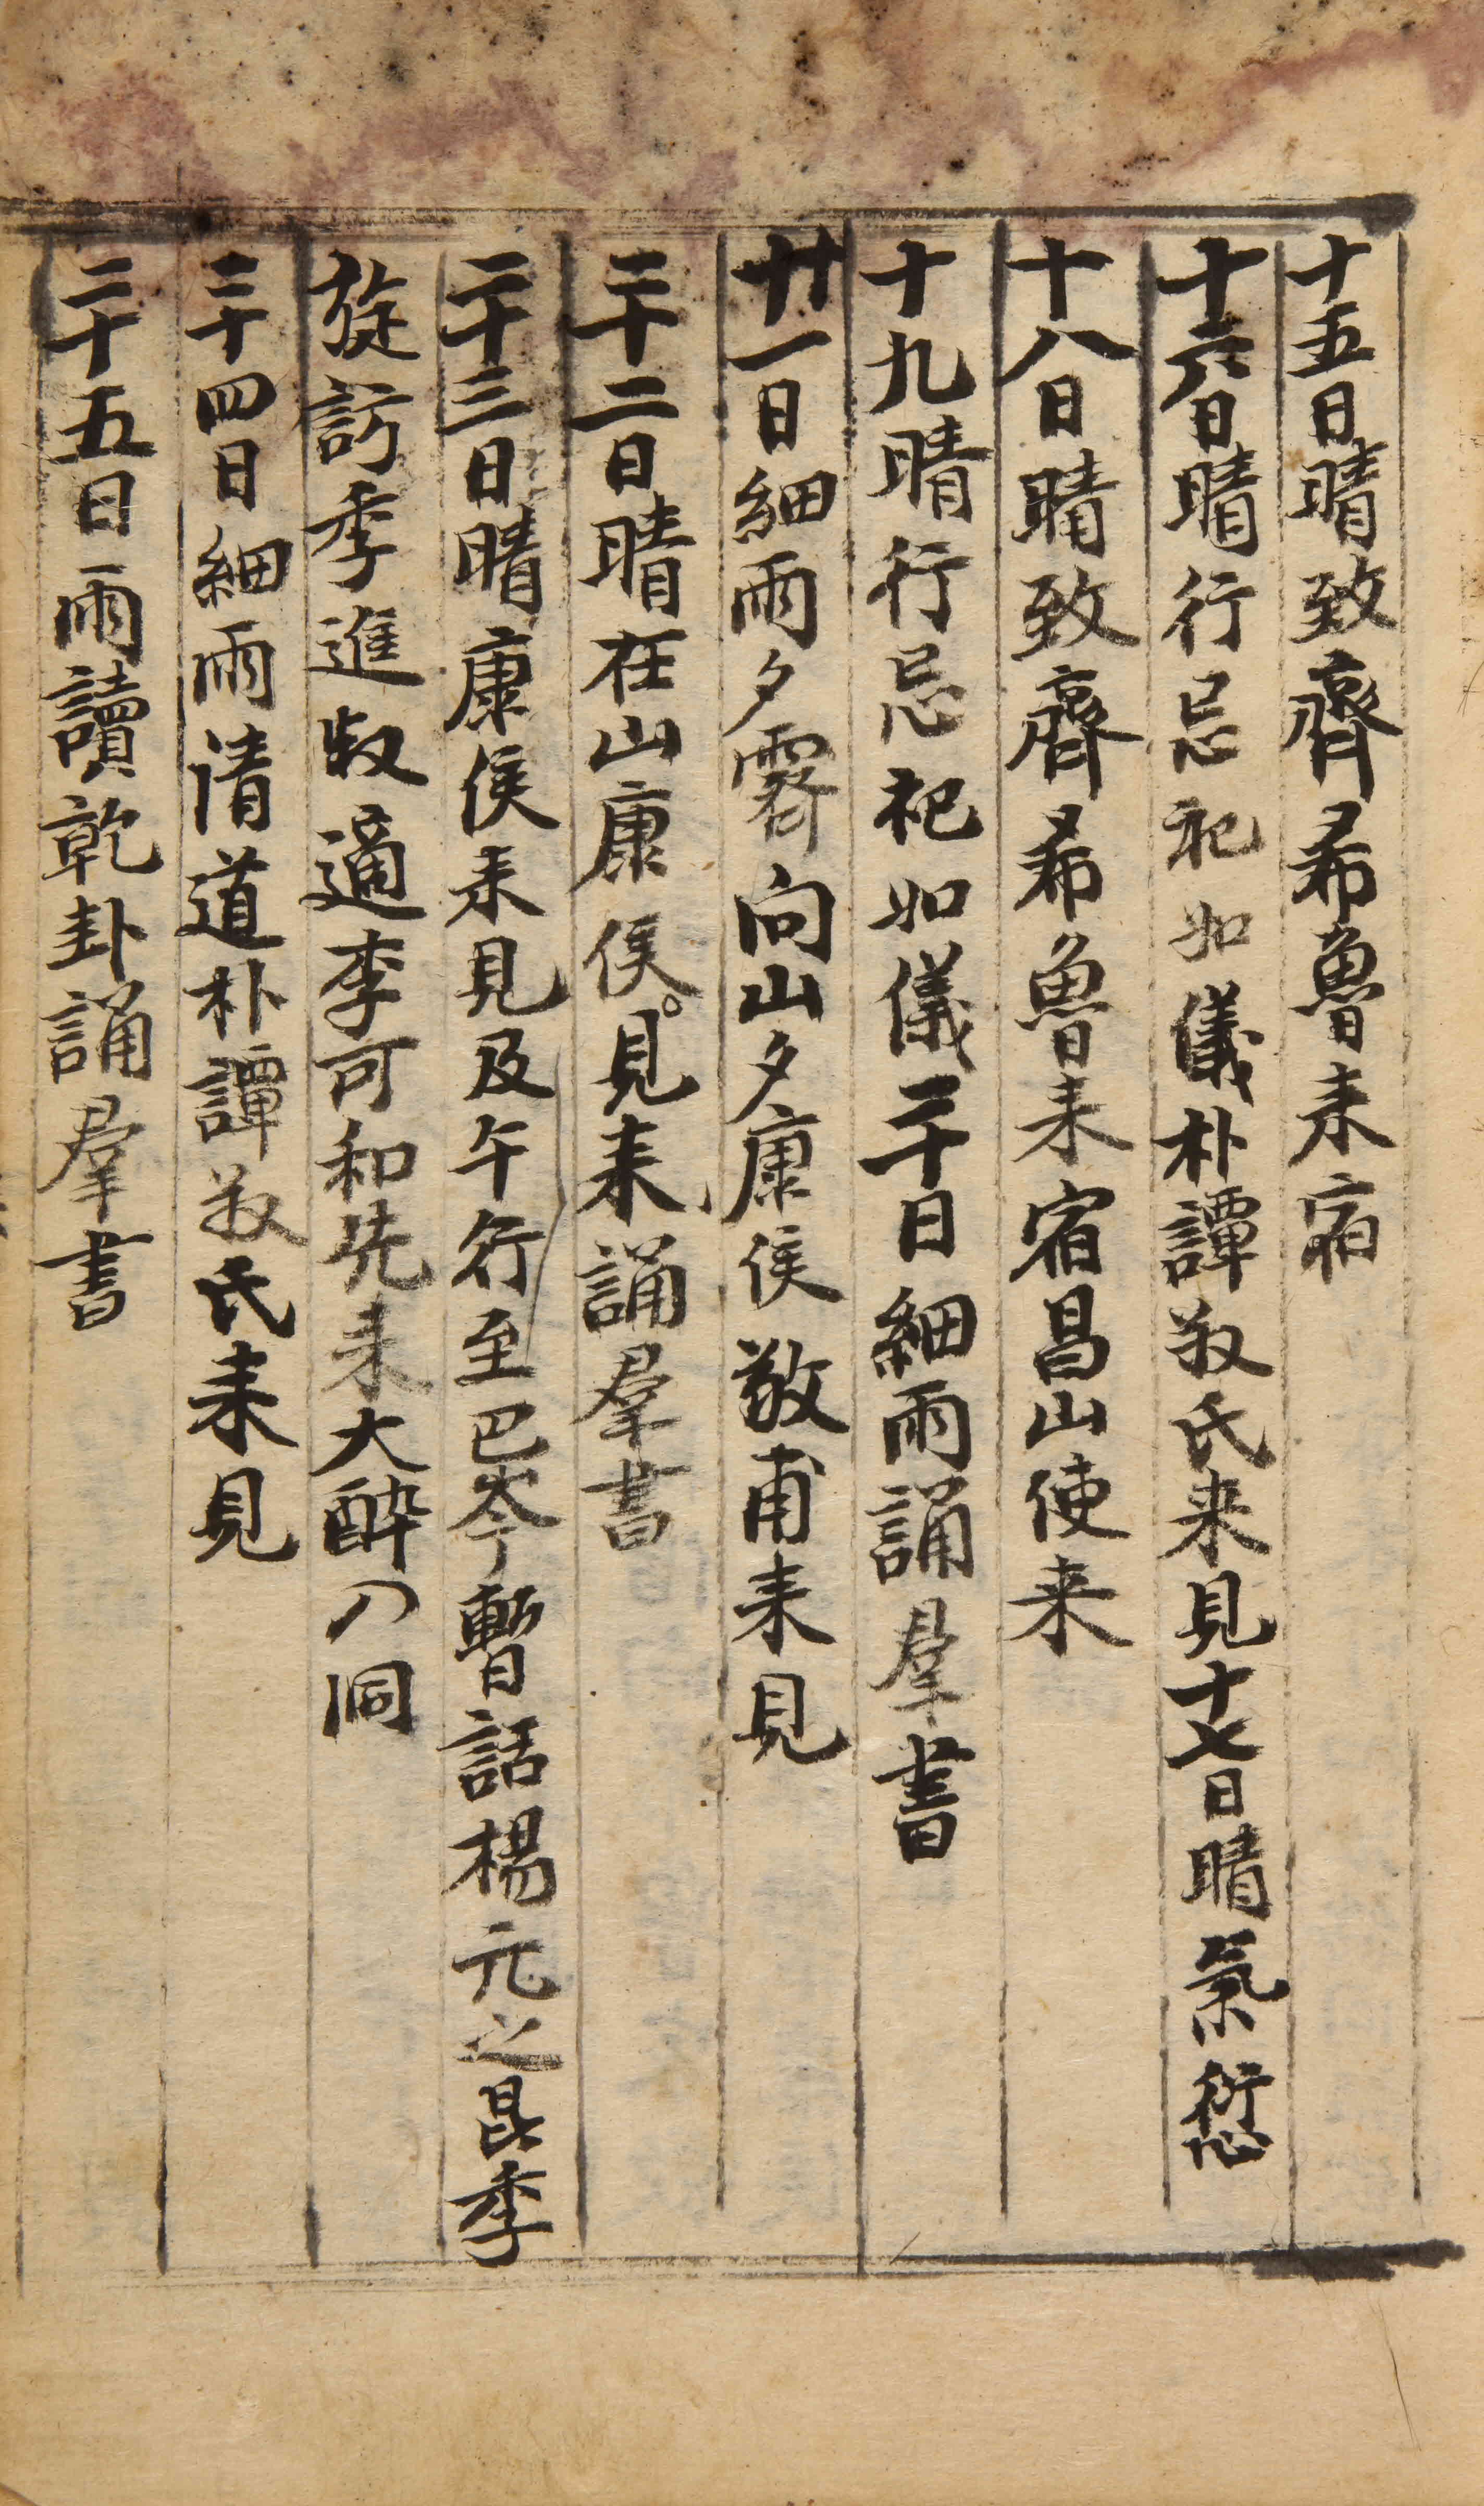 十五日晴致齊希魯来宿
十六日晴行忌祀如儀朴譚叔氏来見十七日晴氣愆
十八日晴致齊希魯来宿昌山使来
十九晴行忌祀如儀二十日細雨誦羣書
廿一日細雨夕霽向山夕康侯敬甫来見
二十二日晴在山康侯見来誦羣書
二十三日晴康侯来見及午行至巴岑暫話楊元之昆季
旋訪季進叔適李可和先来大醉入洞
二十四日細雨清道朴譚叔氏来見
二十五日雨讀乾卦誦羣書